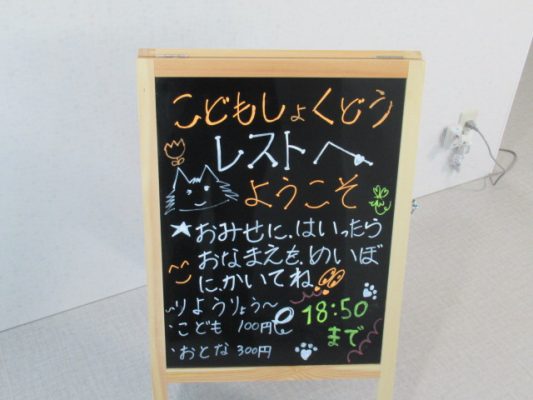 こどもしょくどう
レストへ
ようこそ
★おみせに、はいったら
おなまえを、めいぼ
に、かいてね
〜りようりょう〜
・こども 100円
・おとな 300円
18:50
まで